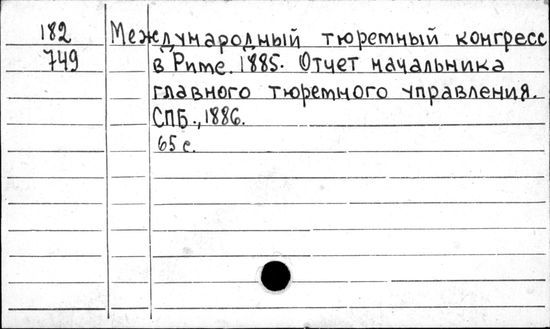 182 Международный тюремный конгресс
749 в Риме. 1885. Отчет начальника
главного тюремного управления.
СПБ., 1886.
65 с.